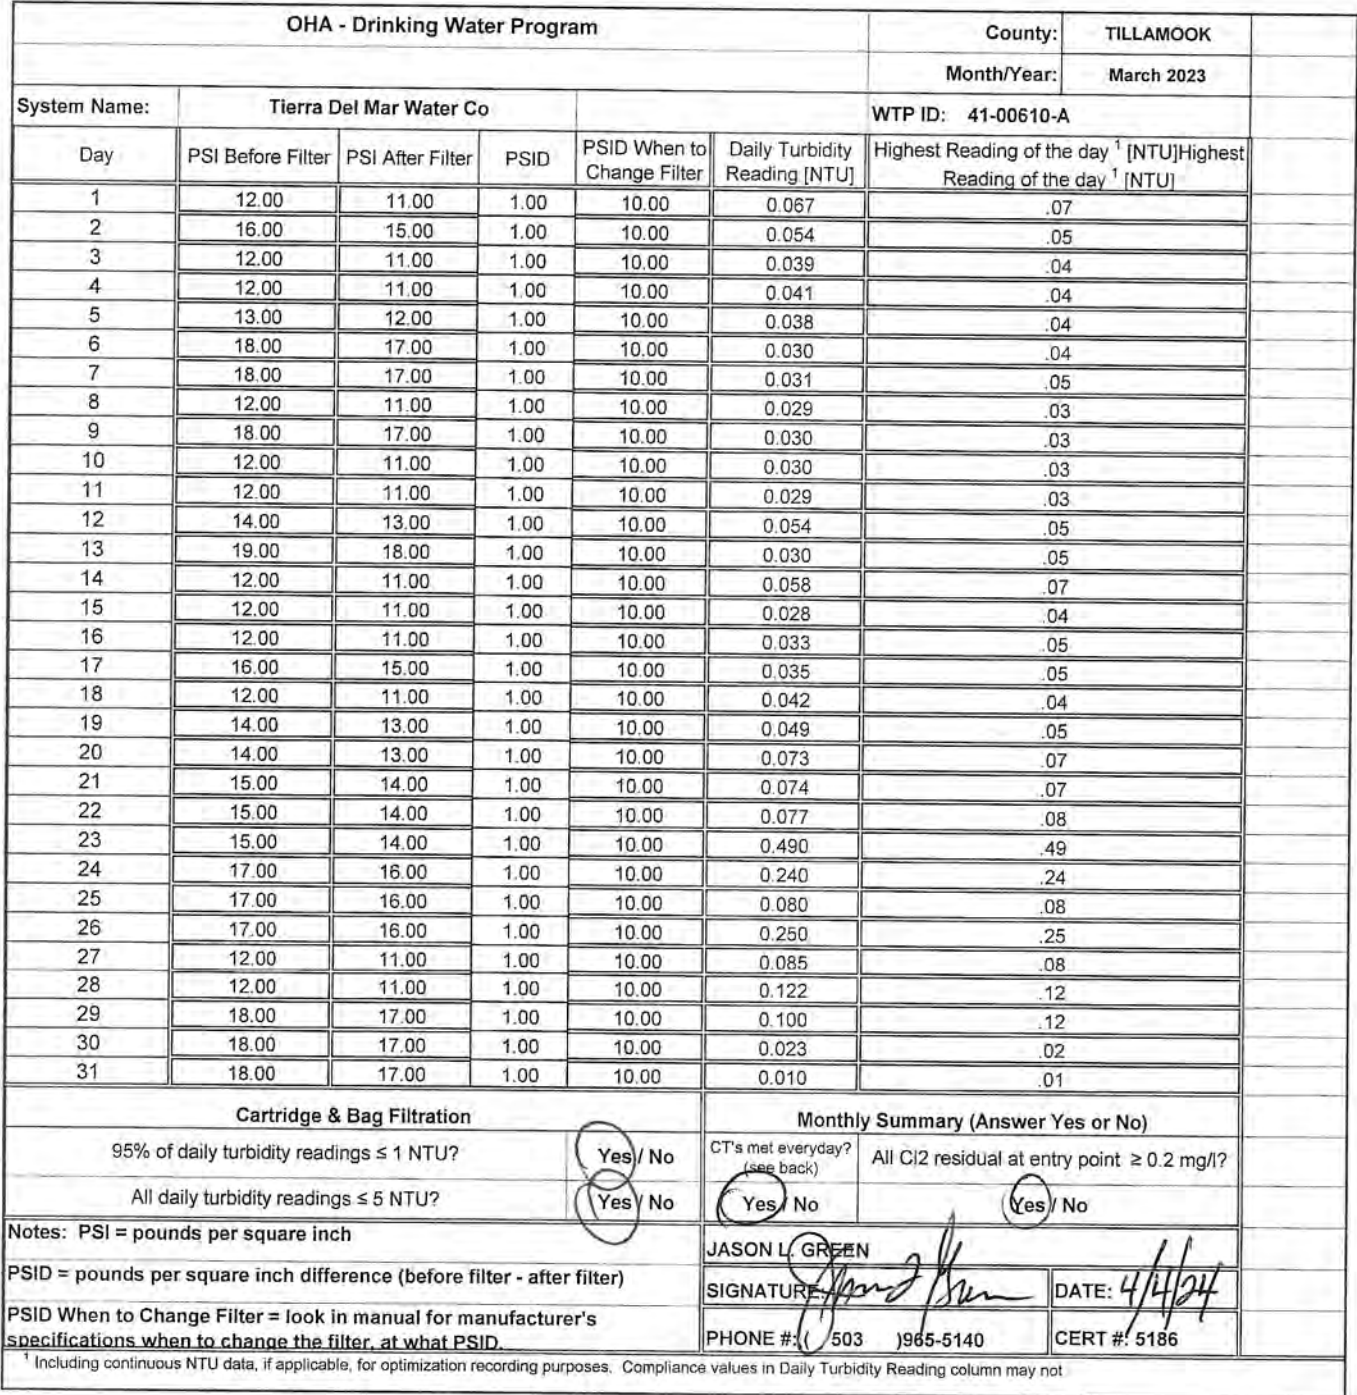 OHA - Drinking Water Program County: TILLAMOOK
Month/Year: March 2023
System Name: Tierra Del Mar Water Co WTP ID: 41-00610-A
Day PSI Before Filter PSI After Filter PSID PSID When to Change Filter Daily Turbidity Reading [NTU] Highest Reading of the day ¹ [NTU]Highest Reading of the day ¹ [NTU]
1 12.00 11.00 1.00 10.00 0.067 .07
2 16.00 15.00 1.00 10.00 0.054 .05
3 12.00 11.00 1.00 10.00 0.039 .04
4 12.00 11.00 1.00 10.00 0.041 .04
5 13.00 12.00 1.00 10.00 0.038 .04
6 18.00 17.00 1.00 10.00 0.030 .04
7 18.00 17.00 1.00 10.00 0.031 .05
8 12.00 11.00 1.00 10.00 0.029 .03
9 18.00 17.00 1.00 10.00 0.030 .03
10 12.00 11.00 1.00 10.00 0.030 .03
11 12.00 11.00 1.00 10.00 0.029 .03
12 14.00 13.00 1.00 10.00 0.054 .05
13 19.00 18.00 1.00 10.00 0.030 .05
14 12.00 11.00 1.00 10.00 0.058 .07
15 12.00 11.00 1.00 10.00 0.028 .04
16 12.00 11.00 1.00 10.00 0.033 .05
17 16.00 15.00 1.00 10.00 0.035 .05
18 12.00 11.00 1.00 10.00 0.042 .04
19 14.00 13.00 1.00 10.00 0.049 .05
20 14.00 13.00 1.00 10.00 0.073 .07
21 15.00 14.00 1.00 10.00 0.074 .07
22 15.00 14.00 1.00 10.00 0.077 .08
23 15.00 14.00 1.00 10.00 0.490 .49
24 17.00 16.00 1.00 10.00 0.240 .24
25 17.00 16.00 1.00 10.00 0.080 .08
26 17.00 16.00 1.00 10.00 0.250 .25
27 12.00 11.00 1.00 10.00 0.085 .08
28 12.00 11.00 1.00 10.00 0.122 .12
29 18.00 17.00 1.00 10.00 0.100 .12
30 18.00 17.00 1.00 10.00 0.023 .02
31 18.00 17.00 1.00 10.00 0.010 .01
Cartridge & Bag Filtration Monthly Summary (Answer Yes or No)
95% of daily turbidity readings ≤ 1 NTU? Yes / No CT's met everyday? (see back) All Cl2 residual at entry point ≥ 0.2 mg/l?
All daily turbidity readings ≤ 5 NTU? Yes / No Yes / No Yes / No
Notes: PSI = pounds per square inch
JASON L. GREEN
PSID = pounds per square inch difference (before filter - after filter)
SIGNATURE: DATE: 4/4/24
PSID When to Change Filter = look in manual for manufacturer's
specifications when to change the filter, at what PSID.
PHONE #: ( 503 )965-5140 CERT #: 5186
¹ Including continuous NTU data, if applicable, for optimization recording purposes. Compliance values in Daily Turbidity Reading column may not